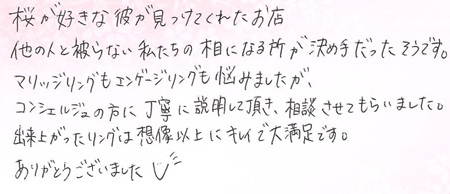 桜が好きな彼が見つけてくれたお店
他の人と被らない私たちの相になる所が決め手だったそうです。
マリッジリングもエンゲージリングも悩みましたが、
コンシェルジュの方に丁寧に説明して頂き、相談させてもらいました。
出来上がったリングは想像以上にキレイで大満足です。
ありがとうございました